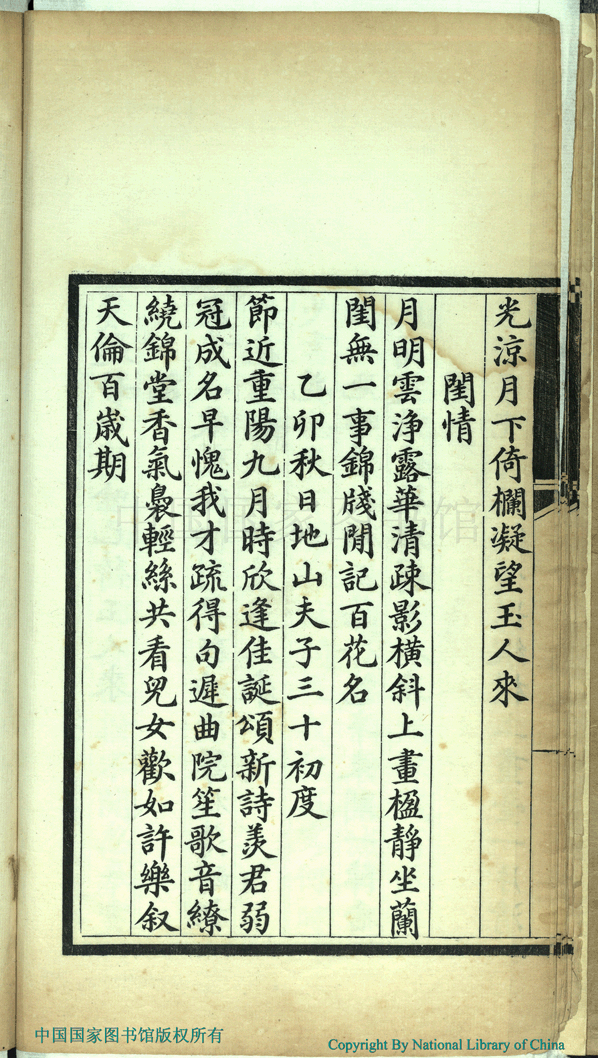 光涼月下倚欄凝望玉人來
閨情
月明雲净露華清疎影橫斜上畫楹靜坐蘭
閨無一事錦牋閒記百花名
乙卯秋日地山夫子三十初度
節近重陽九月時欣逢佳誕頌新詩羨君弱
冠成名早愧我才疏得句遲曲院笙歌音繚
繞錦堂香氣裊輕絲共看兒女歡如許樂叙
天倫百歲期
中国国家图书馆
中国国家图书馆版权所有
Copyright By National Library of China